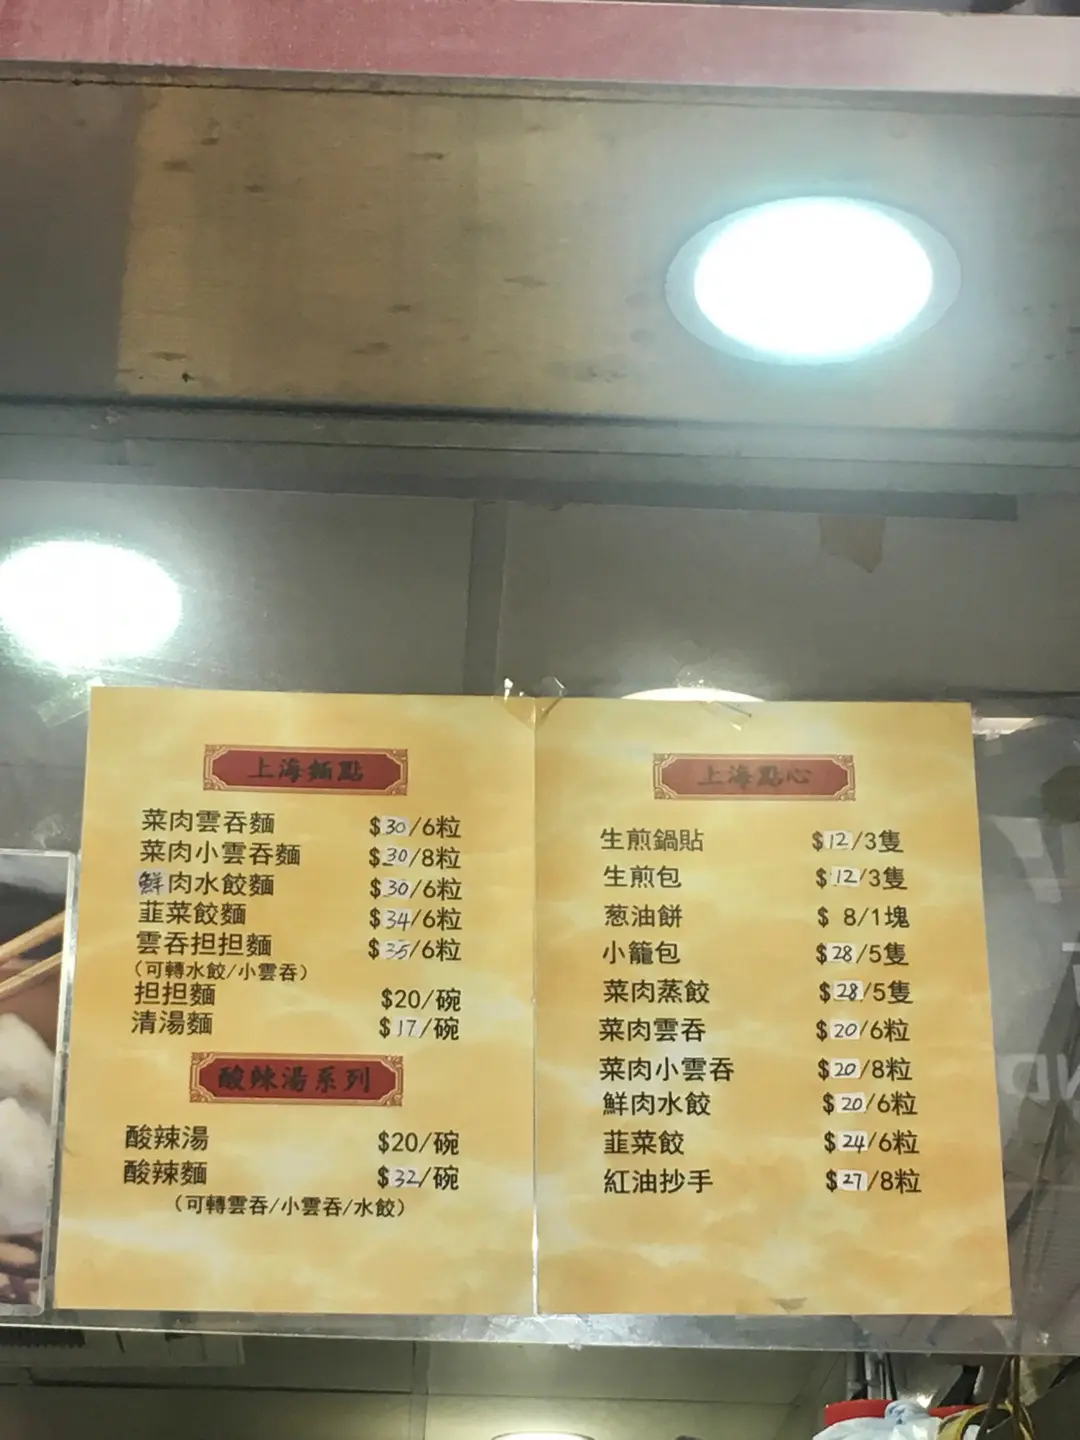 上海麵點
菜肉雲吞麵 $30/6粒
菜肉小雲吞麵 $30/8粒
鮮肉水餃麵 $30/6粒
韮菜餃麵 $34/6粒
雲吞担担麵 $35/6粒
（可轉水餃/小雲吞）
担担麵 $20/碗
清湯麵 $17/碗
酸辣湯系列
酸辣湯 $20/碗
酸辣麵 $32/碗
（可轉雲吞/小雲吞/水餃）
上海點心
生煎鍋貼 $12/3隻
生煎包 $12/3隻
葱油餅 $ 8/1塊
小籠包 $28/5隻
菜肉蒸餃 $28/5隻
菜肉雲吞 $20/6粒
菜肉小雲吞 $20/8粒
鮮肉水餃 $20/6粒
韮菜餃 $24/6粒
紅油抄手 $27/8粒